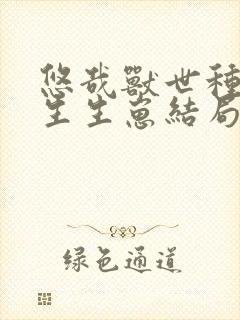 悠哉獸世種
生生崽結局
绿色通道